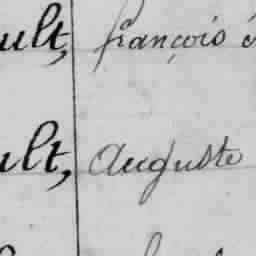 ult, françois
ult, Auguste